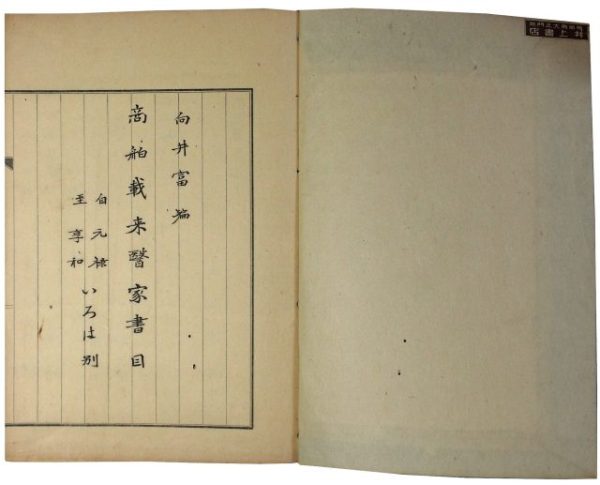 向井富編
商舶載来醫家書目
自元禄
至享和
いろは別